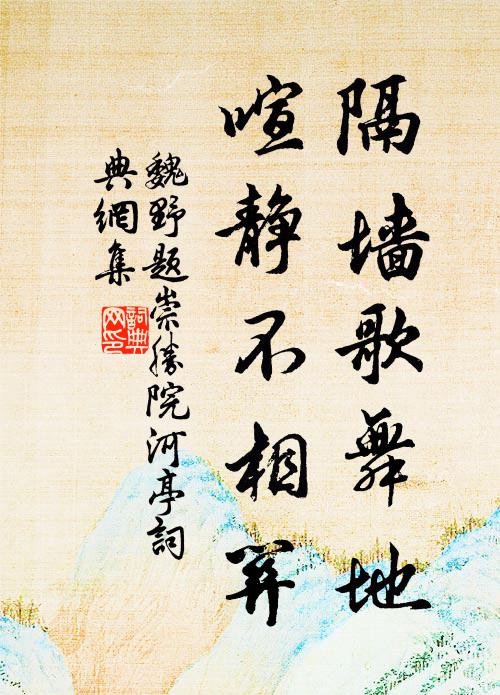 隔墙歌舞地
喧静不相关
魏野題崇勝院河亭詞
典網集
詞典
网印